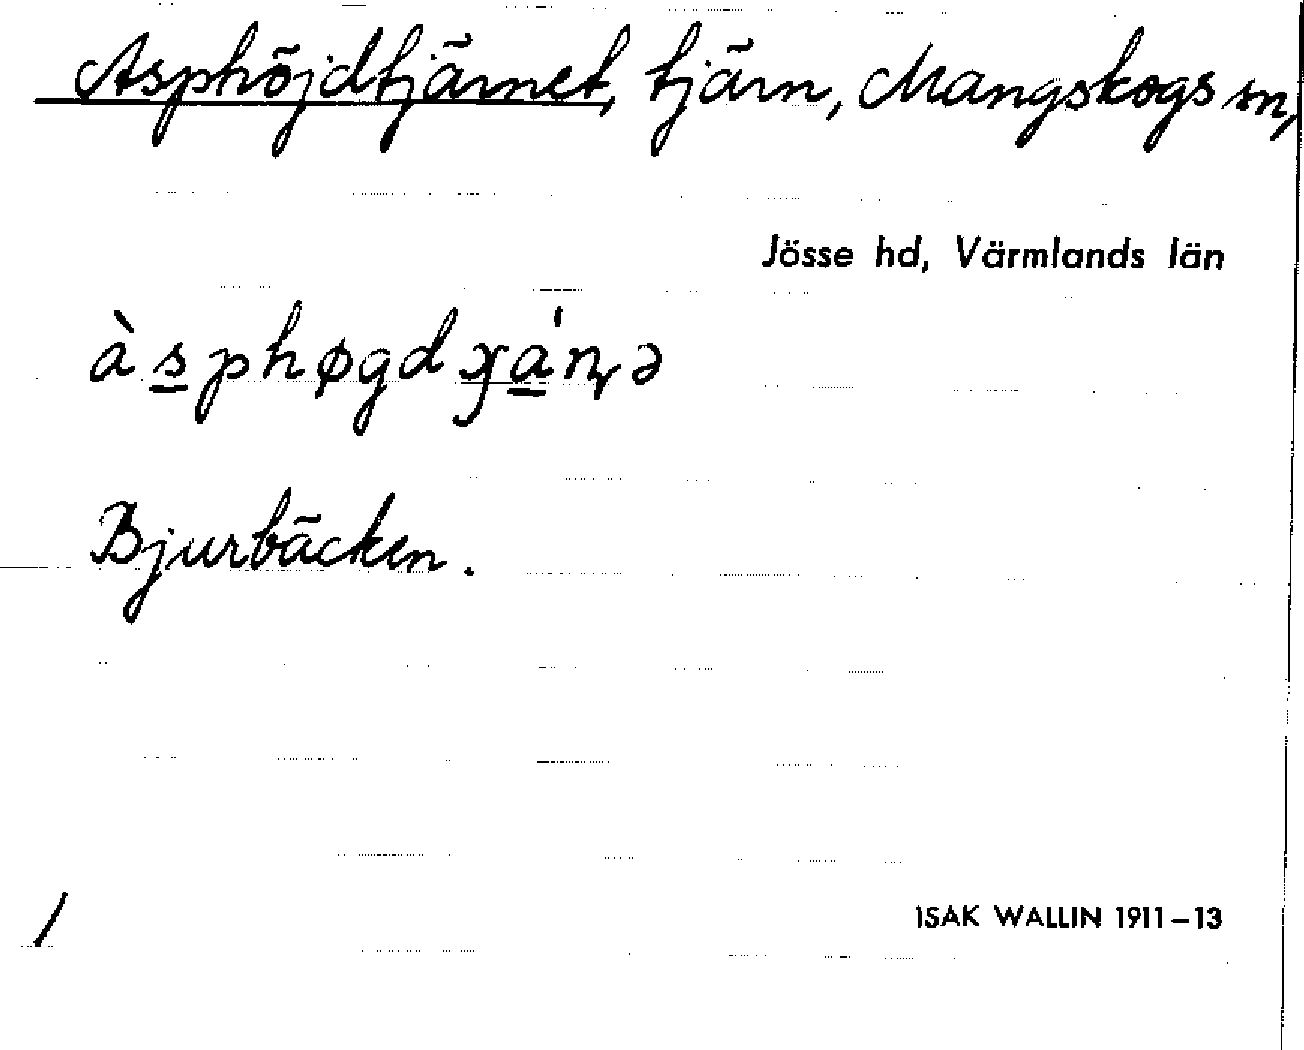 Asphöjdtjärnet, tjärn, Mangskogs sn,
Jösse hd, Värmlands län
Bjurbäcken.
/
ISAK WALLIN 1911–13